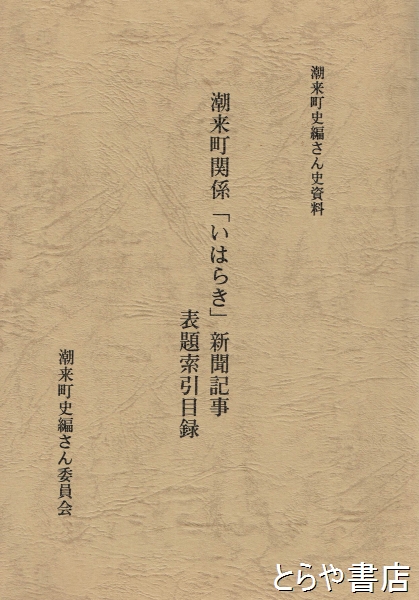 潮来町史編さん史資料
潮来町関係「いはらき」新聞記事
表題索引目録
潮来町史編さん委員会
とらや書店